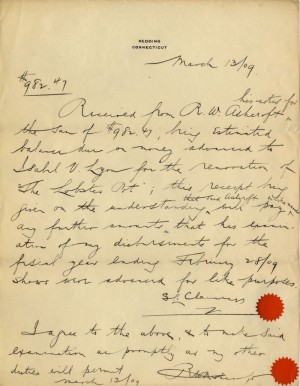 REDDING
CONNECTICUT
March 13/09.
$982.47
his notes for
Received from R. W. Ashcroft
the sum of $982.47, being estimated
balance due on money advanced to
Isabel V. Lyon for the renovation of
"The Lobster Pot"; this receipt being
given on the understanding
that said Ashcroft will pay
any further amounts that his exami-
nation of my disbursements for the
fiscal year ending February 28/09
shows were advanced for like purposes.
S. L. Clemens
I agree to the above, & to make said
examination as promptly as my other
duties will permit
March 13/09
R W Ashcroft